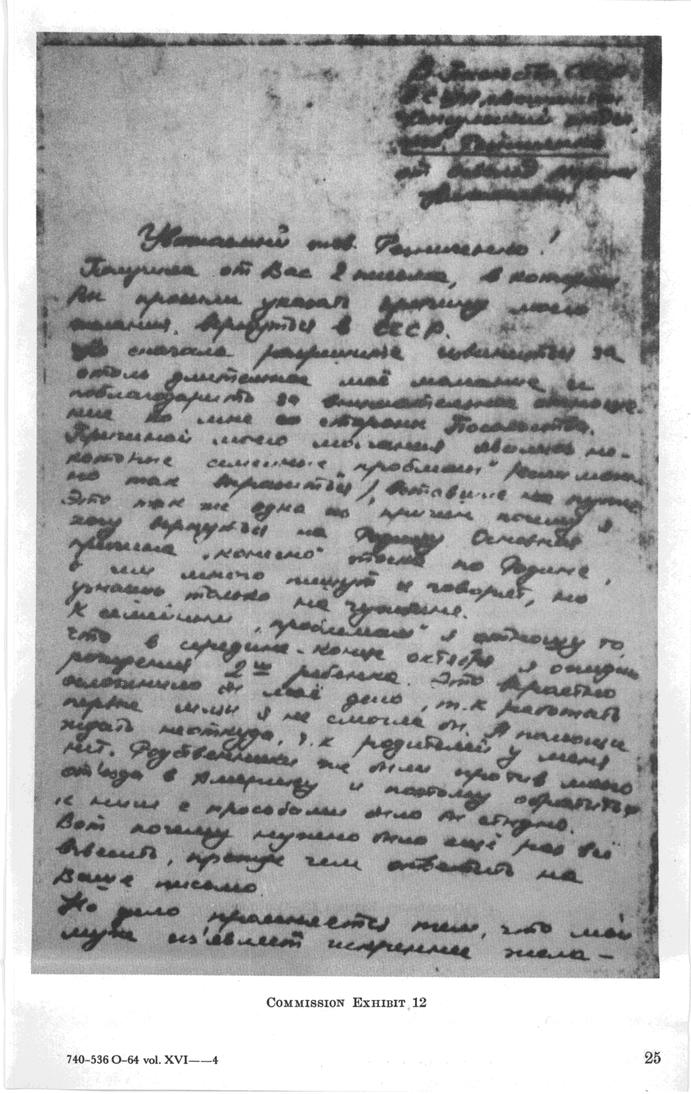 В Посольство СССР
в США
Консульский отдел,
от
Уважаемый тов. Резниченко!
Получила от Вас 2 письма, в которых
Вы просили указать причину моего
желания вернуться в СССР.
Но сначала разрешите извиниться за
столь длительное моё молчание и
поблагодарить за внимательное отноше-
ние ко мне со стороны Посольства.
Причиной моего молчания явились не-
которые семейные „проблемы" (если мож-
но так выразиться),
Это так же одна из причин почему я
хочу вернуться на Родину. Основная
причина „конечно" тоска по Родине,
о чем много пишут и говорят, но
узнаёшь только на чужбине.
К семейным „проблемам" я отношу то,
что в середине-конце октября я ожидаю
рождения 2го ребенка. Это
осложнило бы моё дело, т.к работать
первые м-цы я не смогла бы. А помощи
ждать неоткуда, т.к родителей у меня
нет. Родственники же были против моего
от'езда в Америку и поэтому обратиться
к ним с просьбами было бы стыдно.
Вот почему нужно было ещё раз всё
взвесить, прежде чем ответить на
Ваше письмо.
Но дело проясняется тем, что мой
муж из'являет искреннее жела-
COMMISSION EXHIBIT 12
740-536 O-64 vol. XVI——4
25